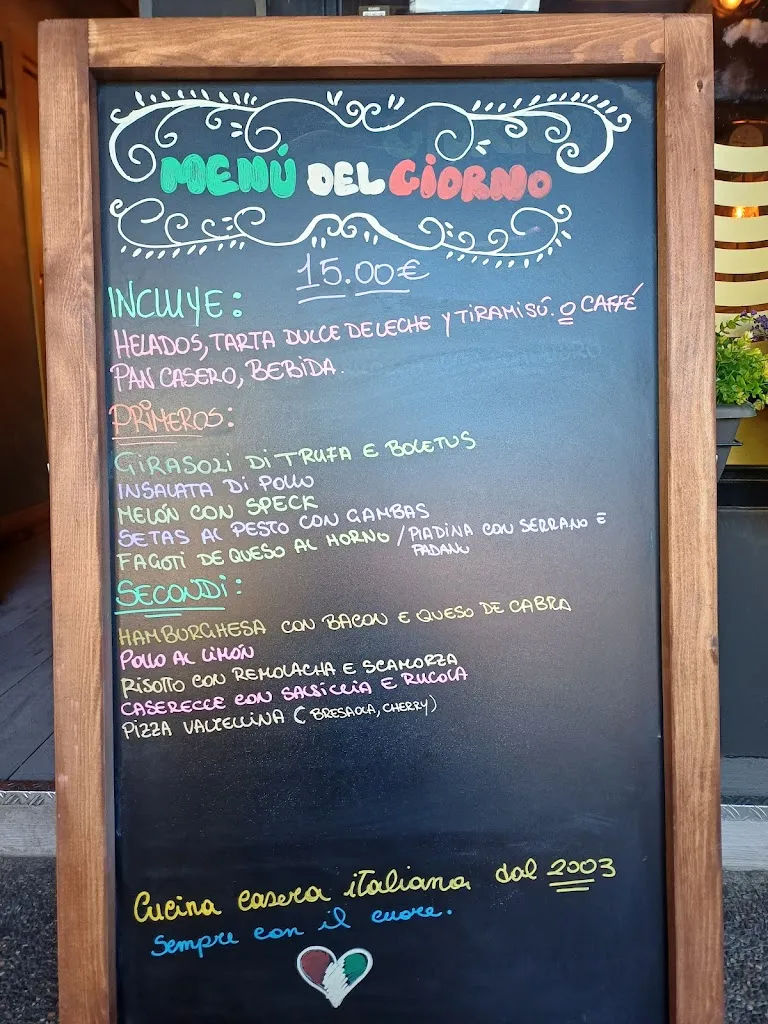 MENÚ DEL GIORNO
15.00€
INCLUYE:
HELADOS, TARTA DULCE DE LECHE Y TIRAMISÚ. O CAFFÉ
PAN CASERO, BEBIDA.
PRIMEROS:
GIRASOLI DI TRUFA E BOLETUS
INSALATA DI POLLO
MELÓN CON SPECK
SETAS AL PESTO CON GAMBAS
FAGOTI DE QUESO AL HORNO / PIADINA CON SERRANO E
PADANO
SECONDI:
HAMBURGHESA CON BACON E QUESO DE CABRA
POLLO AL LIMÓN
RISOTTO CON REMOLACHA E SCAMORZA
CASERECCE CON SALSICCIA E RUCOLA
PIZZA VALTELLINA (BRESAOLA, CHERRY)
Cucina casera italiana dal 2003
Sempre con il cuore.